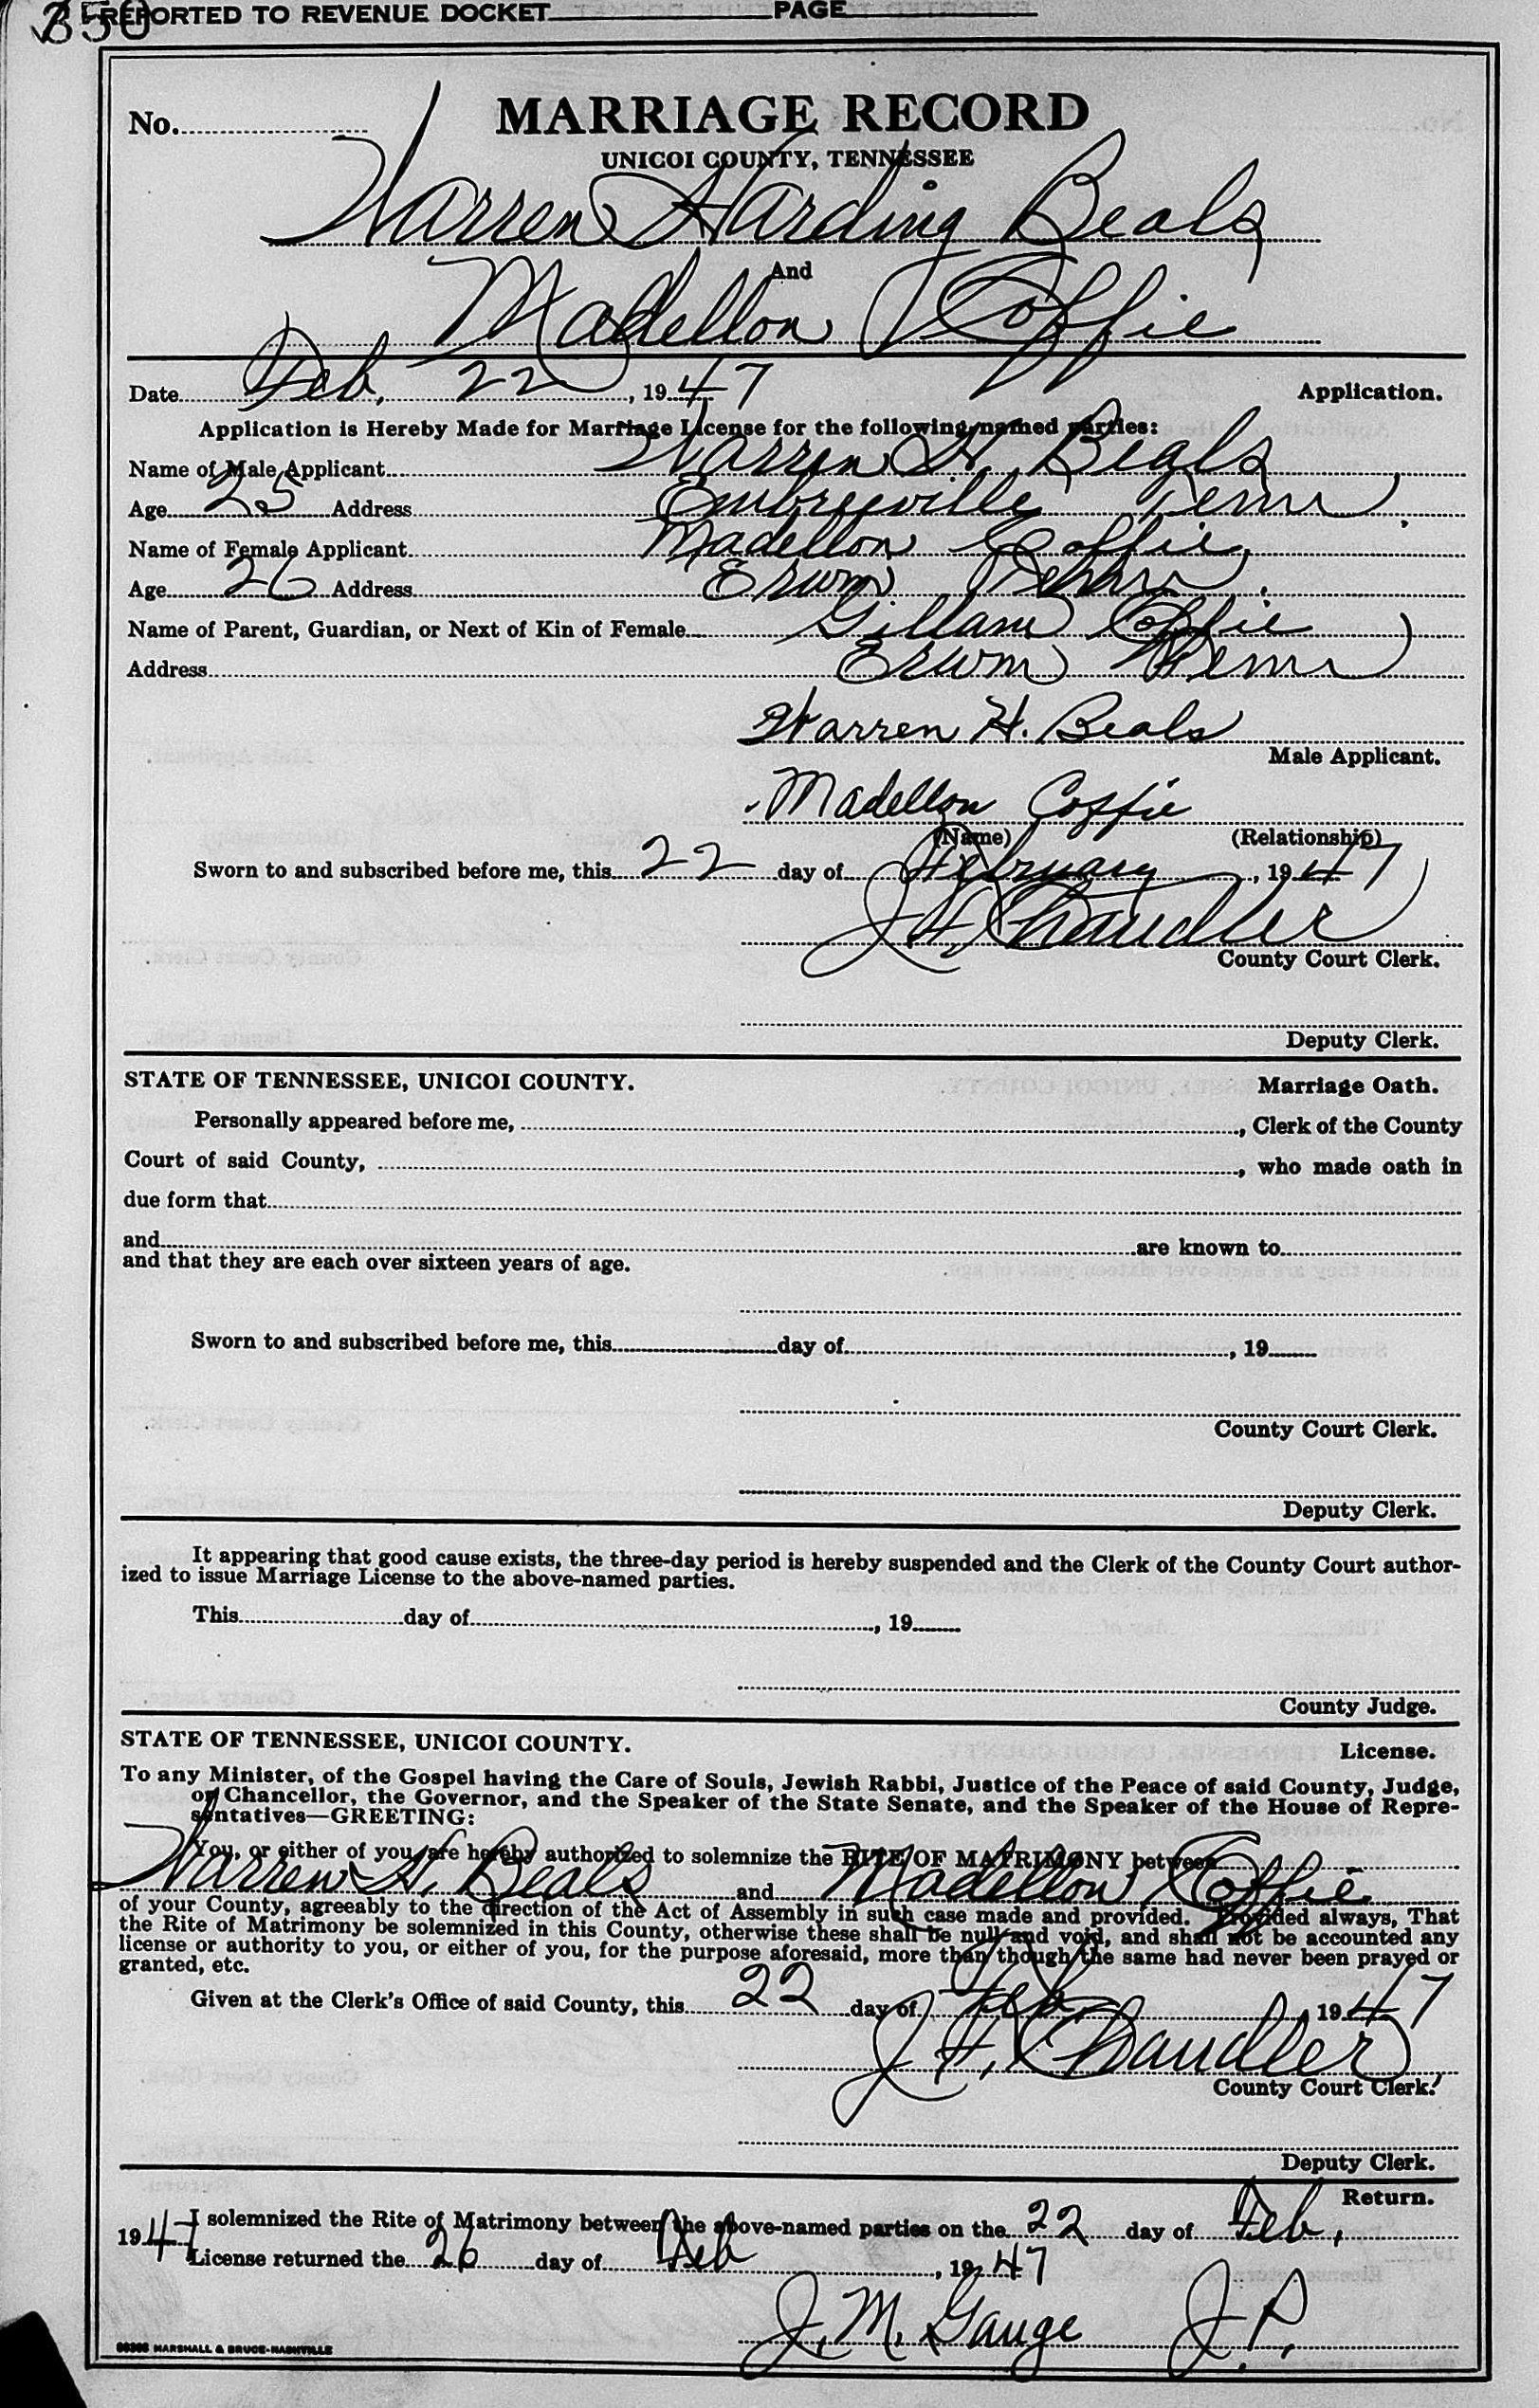 350
REPORTED TO REVENUE DOCKET PAGE
No. MARRIAGE RECORD
UNICOI COUNTY, TENNESSEE
Warren Harding Beals
And
Madellon Coffie
Date Feb. 22, 1947 Application.
Application is Hereby Made for Marriage License for the following named parties:
Name of Male Applicant Warren H. Beals
Age 25 Address Embreeville Tenn.
Name of Female Applicant Madellon Coffie
Age 26 Address Erwin Tenn.
Name of Parent, Guardian, or Next of Kin of Female Gillam Coffie
Address Erwin Tenn
Warren H. Beals
Male Applicant.
Madellon Coffie
(Name) (Relationship)
Sworn to and subscribed before me, this 22 day of February, 1947
J.H. Chandler
County Court Clerk.
Deputy Clerk.
STATE OF TENNESSEE, UNICOI COUNTY. Marriage Oath.
Personally appeared before me, , Clerk of the County
Court of said County, , who made oath in
due form that
and are known to
and that they are each over sixteen years of age.
Sworn to and subscribed before me, this day of , 19
County Court Clerk.
Deputy Clerk.
It appearing that good cause exists, the three-day period is hereby suspended and the Clerk of the County Court author-
ized to issue Marriage License to the above-named parties.
This day of , 19
County Judge.
STATE OF TENNESSEE, UNICOI COUNTY. License.
To any Minister, of the Gospel having the Care of Souls, Jewish Rabbi, Justice of the Peace of said County, Judge,
or Chancellor, the Governor, and the Speaker of the State Senate, and the Speaker of the House of Repre-
sentatives—GREETING:
You, or either of you, are hereby authorized to solemnize the RITE OF MATRIMONY between
Warren H. Beals and Madellon Coffie
of your County, agreeably to the direction of the Act of Assembly in such case made and provided. Provided always, That
the Rite of Matrimony be solemnized in this County, otherwise these shall be null and void, and shall not be accounted any
license or authority to you, or either of you, for the purpose aforesaid, more than though the same had never been prayed or
granted, etc.
Given at the Clerk's Office of said County, this 22 day of Feb. 1947
J.H. Chandler
County Court Clerk.
Deputy Clerk.
Return.
I solemnized the Rite of Matrimony between the above-named parties on the 22 day of Feb.
1947
License returned the 26 day of Feb, 1947
J.M. Gauge J.P.
MARSHALL & BRUCE-NASHVILLE